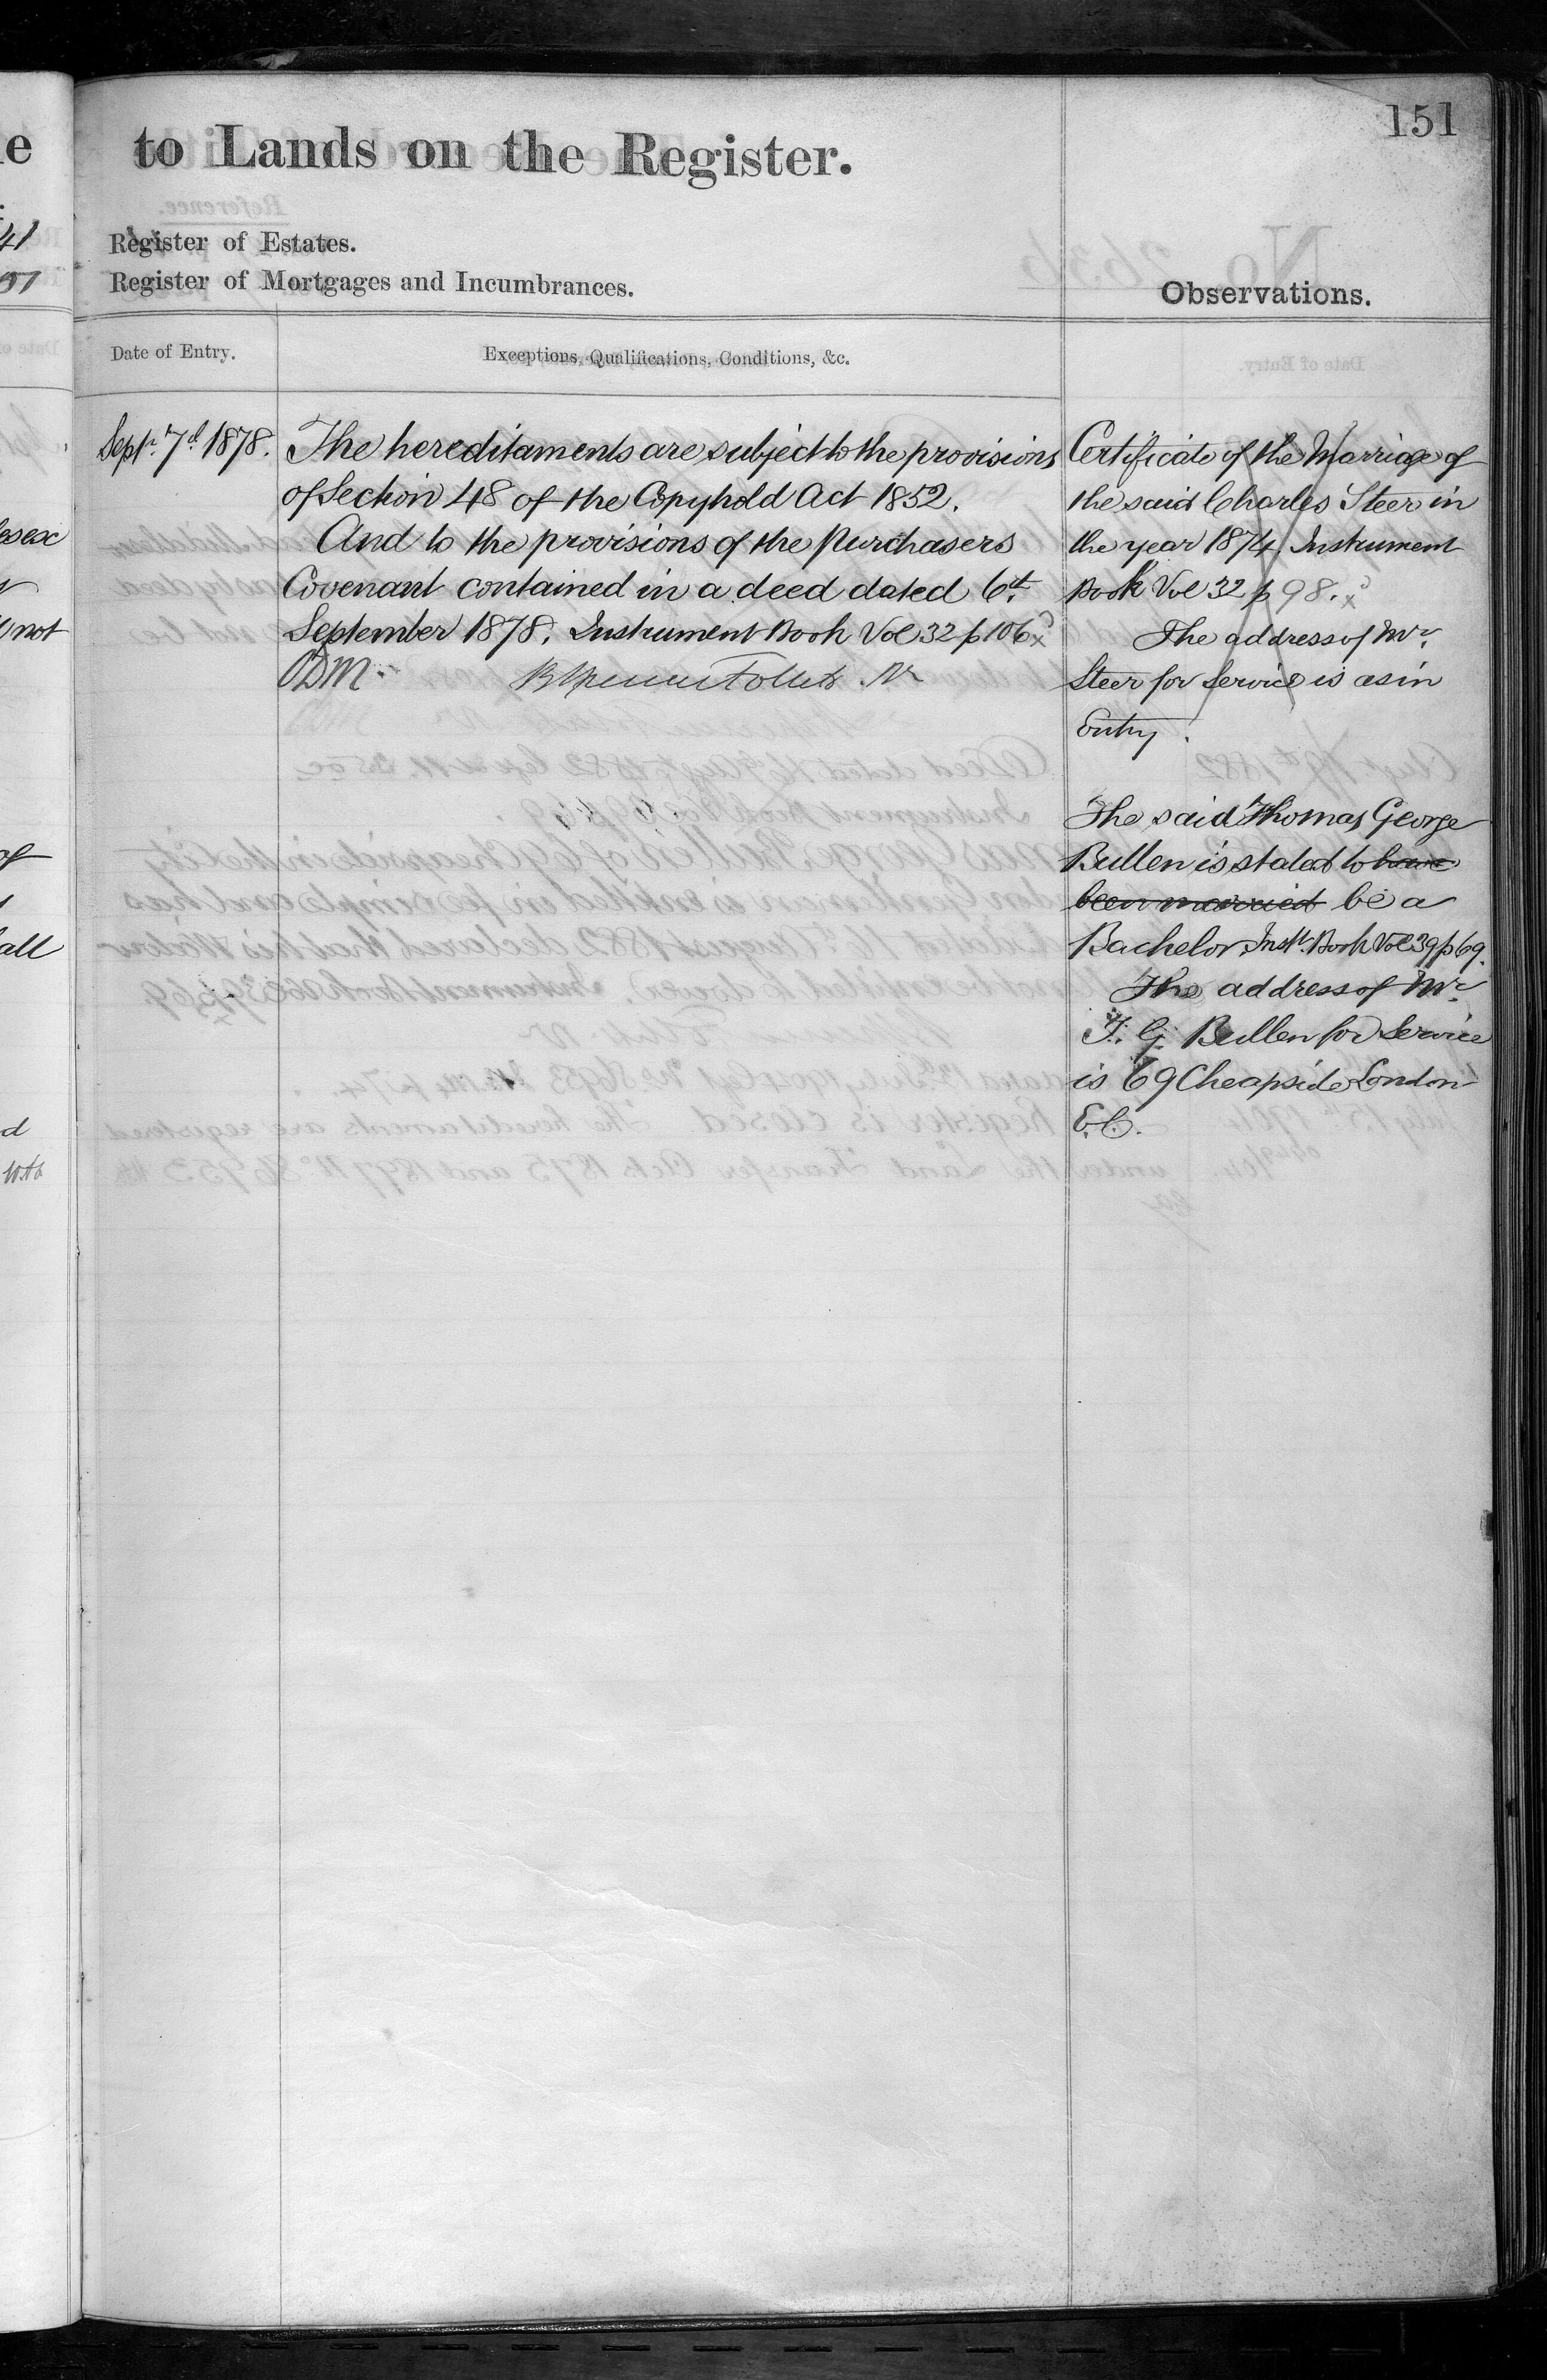 151
to Lands on the Register.
Register of Estates.
Register of Mortgages and Incumbrances.
Observations.
Date of Entry.
Exceptions, Qualifications, Conditions, &c.
Septr. 7th 1878.
The hereditaments are subject to the provisions
of Section 48 of the Copyhold Act 1852.
And to the provisions of the Purchasers
Covenant contained in a deed dated 6th
September 1878. Instrument Book Vol 32 p 106
Certificate of the Marriage of
the said Charles Steer in
the year 1874 Instrument
Book Vol 32 p 98.
The address of Mr.
Steer for service is as in
Entry.
The said Thomas George
Bullen is stated to have
been married be a
Bachelor Inst. Book Vol 39 p 69.
The address of Mr.
T. G. Bullen for service
is 69 Cheapside London
E.C.
e
41
esex
not
of
all
d